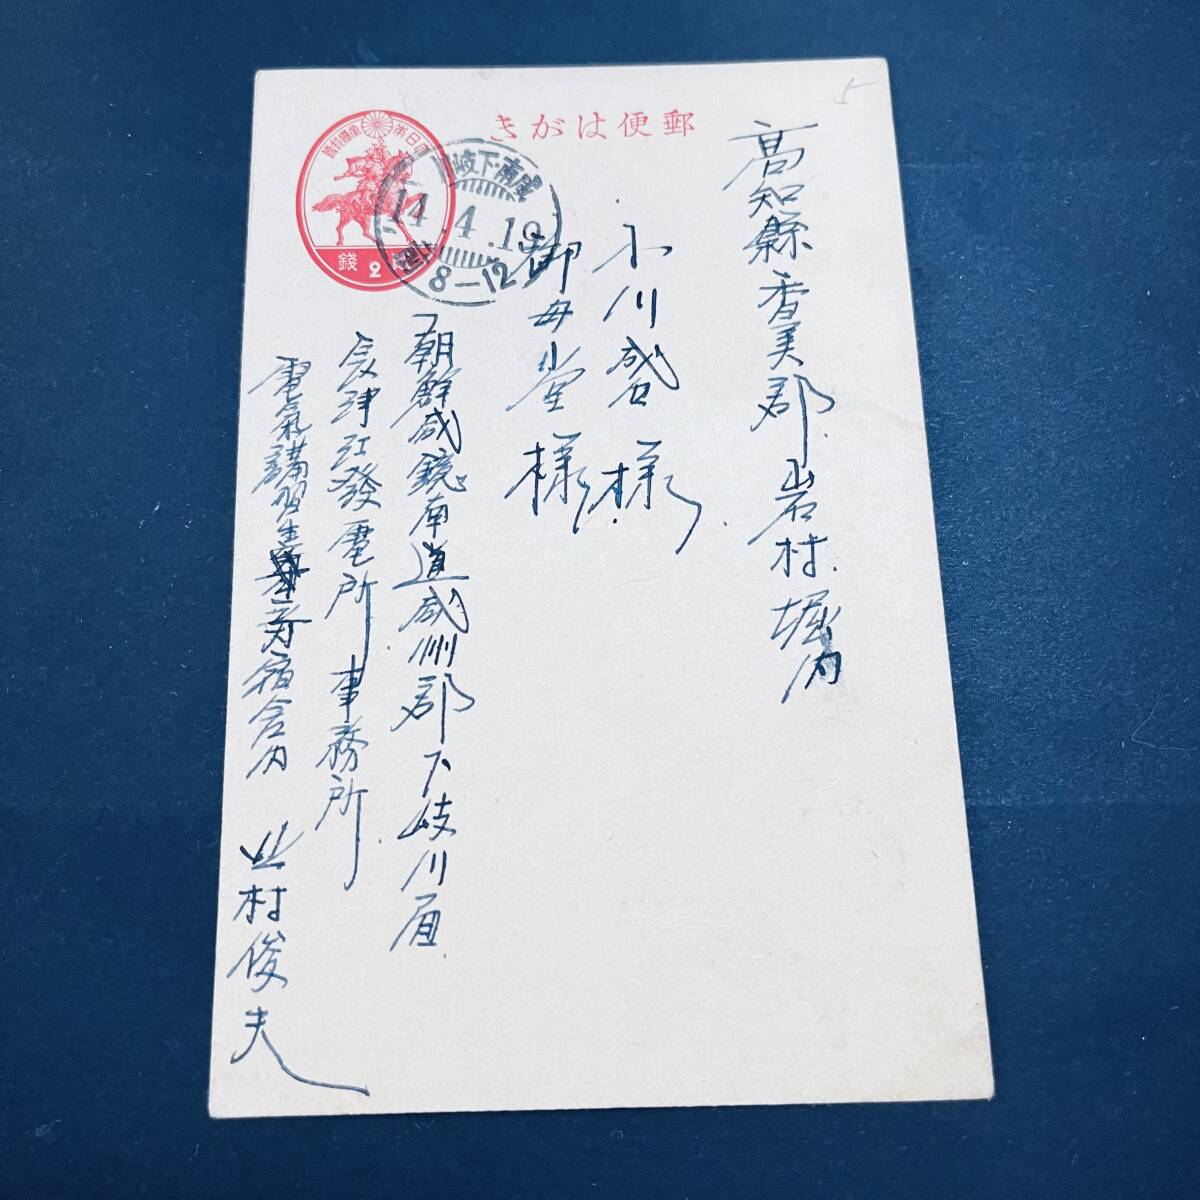 郵便はがき
大日本帝國郵便
貳 2 錢
咸南・下岐川
14.4.19
后8-12
5
高知縣香美郡岩村堀内
小川盛様
御母堂様
朝鮮咸鏡南道咸州郡下岐川面
長津江發電所事務所
電氣講習生寄宿舎内
村俊夫